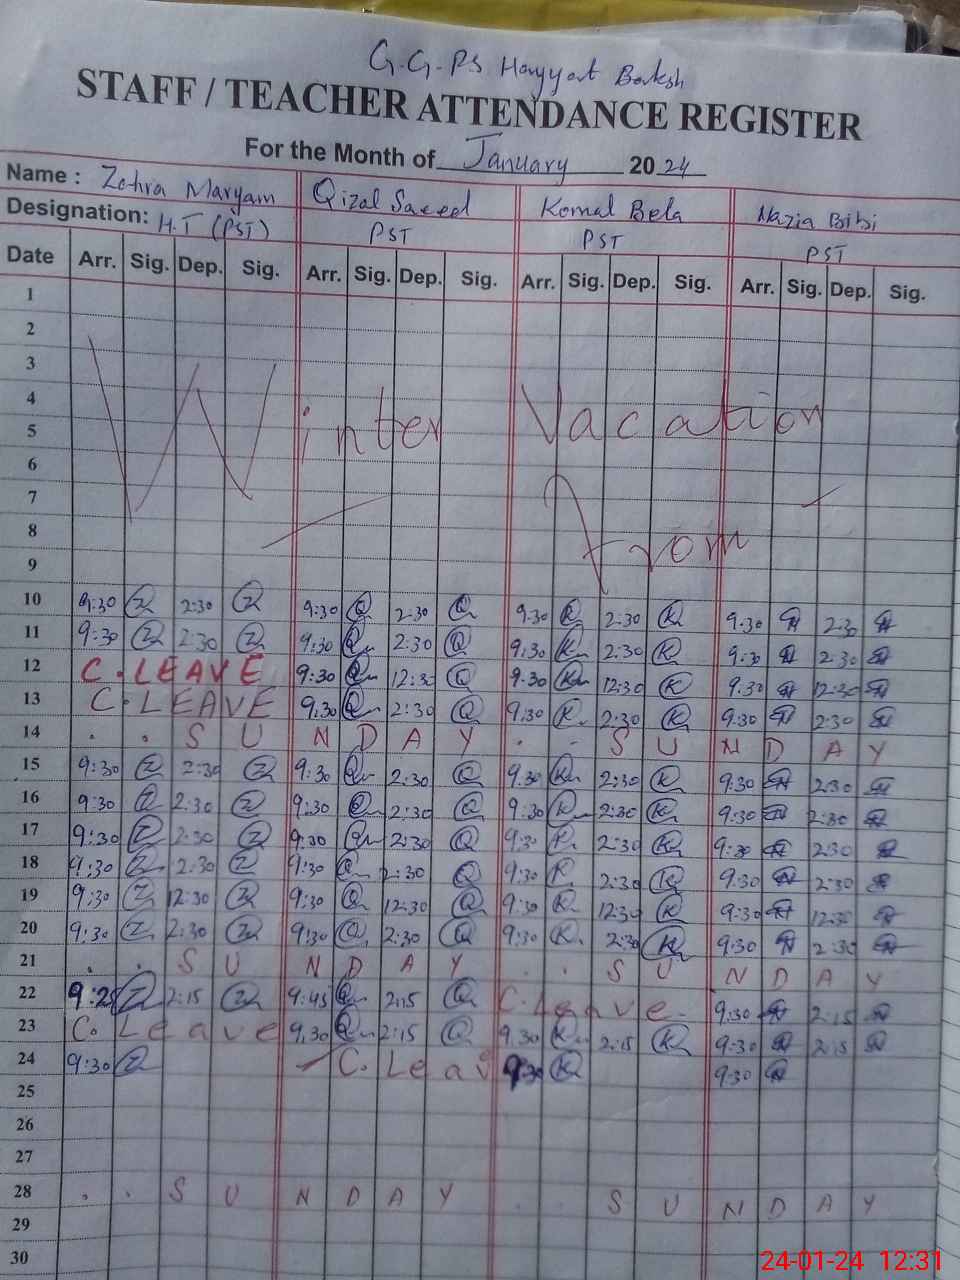 G.G.PS Hayyat Baksh
STAFF / TEACHER ATTENDANCE REGISTER
For the Month of January 2024
Name : Zohra Maryam Qizal Saeed Komal Bela Nazia Bibi
Designation: H.T (PST) PST PST PST
Date Arr. Sig. Dep. Sig. Arr. Sig. Dep. Sig. Arr. Sig. Dep. Sig. Arr. Sig. Dep. Sig.
1
2
3
4
5 Winter Vacation
6
7
8 from
9
10 9:30 Z 2:30 Z 9:30 Q 2:30 Q 9:30 K 2:30 K 9:30 2:30
11 9:30 Z 2:30 Z 9:30 Q 2:30 Q 9:30 K 2:30 K 9:30 2:30
12 C. LEAVE 9:30 Q 12:30 Q 9:30 K 12:30 K 9:30 12:30
13 C. LEAVE 9:30 Q 2:30 Q 9:30 K 2:30 K 9:30 2:30
14 . . S U N D A Y . . S U N D A Y
15 9:30 Z 2:30 Z 9:30 Q 2:30 Q 9:30 K 2:30 K 9:30 2:30
16 9:30 Z 2:30 Z 9:30 Q 2:30 Q 9:30 K 2:30 K 9:30 2:30
17 9:30 Z 2:30 Z 9:30 Q 2:30 Q 9:30 K 2:30 K 9:30 2:30
18 9:30 Z 2:30 Z 9:30 Q 2:30 Q 9:30 K 2:30 K 9:30 2:30
19 9:30 Z 12:30 Z 9:30 Q 12:30 Q 9:30 K 12:30 K 9:30 12:30
20 9:30 Z 2:30 Z 9:30 Q 2:30 Q 9:30 K 2:30 K 9:30 2:30
21 . . S U N D A Y . . S U N D A Y
22 9:25 Z 2:15 Z 9:45 Q 2:15 Q C. Leave. 9:30 2:15
23 C. Leave 9:30 Q 2:15 Q 9:30 K 2:15 K 9:30 2:15
24 9:30 Z C. Leav 9:30 K 9:30
25
26
27
28 . . S U N D A Y . . S U N D A Y
29
30
24-01-24 12:31